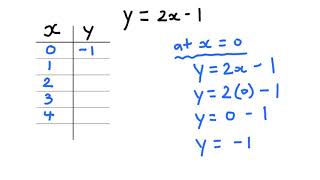 y = 2x - 1
x y
0 -1
1
2
3
4
at x = 0
y = 2x - 1
y = 2(0) - 1
y = 0 - 1
y = -1